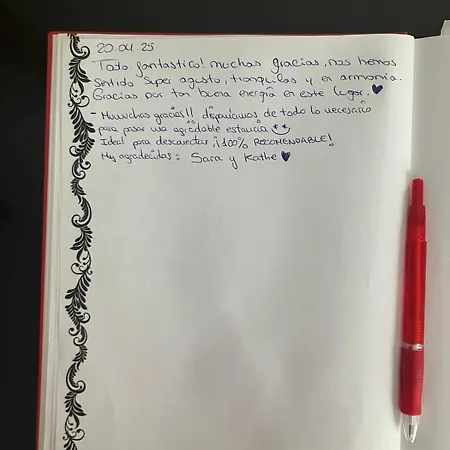 20.04.25
Todo fantastico! muchas gracias, nos hemos
sentido super agusto, tranquilas y en armonia.
Gracias por tan buena energía en este lugar. ♥
- Muuuchas gracias!! disponíamos de todo lo necesario
para pasar una agradable estancia
Ideal para desconectar, ¡100% RECOMENDABLE!
Muy agradecidas: Sara y Kathe ♥